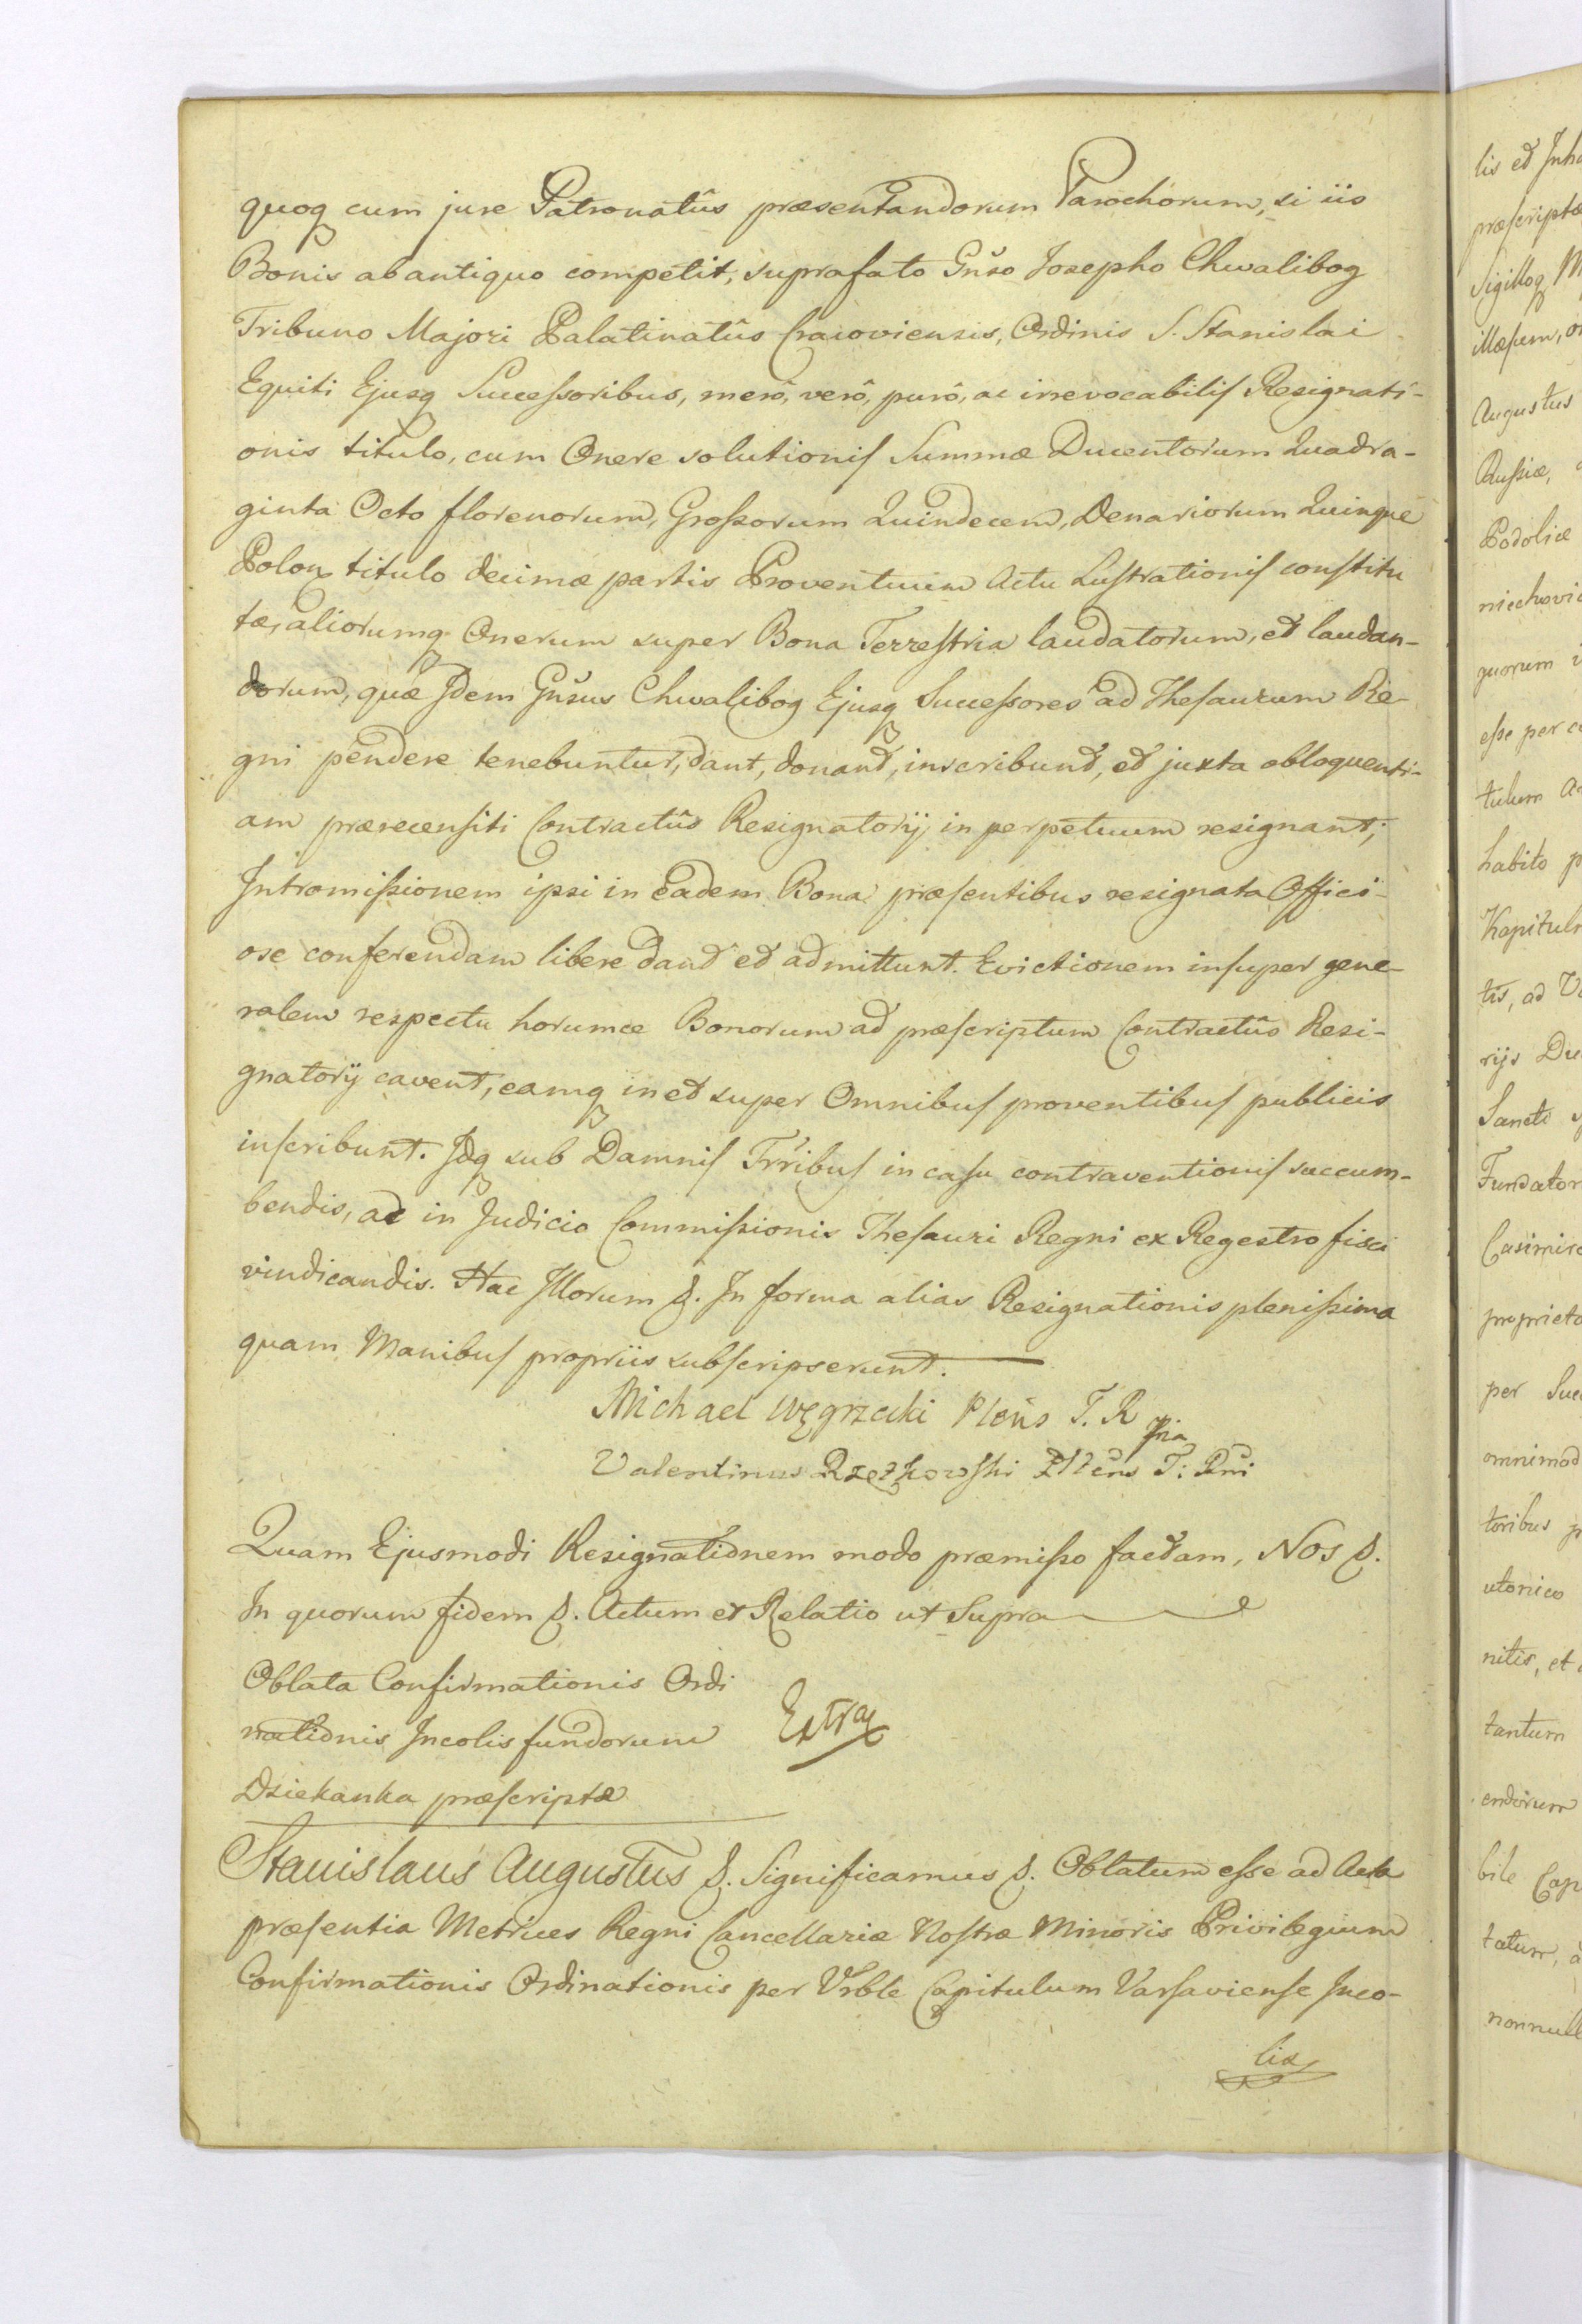 quoq cum jure Patronatûs præsentandorum Parochorum, si iis
Bonis ab antiquo competit, suprafato Gnŝo Josepho Chwalibog
Tribuno Majori Palatinatûs Cracoviensis, Ordinis S. Stanislai
Equiti Ejusq Successoribus, merô, verô, purô, ac irrevocabilis Resignati-
onis titulo, cum Onere solutionis Summæ Ducentorum Quadra-
ginta Octo florenorum, Grossorum Quindecem, Denariorum Quinque
Polon titulo decimæ partis Proventuum Actu Lustrationis constitu
tæ, aliorumq Onerum super Bona Terrestria laudatorum, et laudan-
dorum, quæ Idem Gnŝus Chwalibog Ejusq Successores ad Thesaurum Re-
gni pendere tenebuntur, dant, donant, inscribunt, et juxta obloquenti-
am prærecensiti Contractûs Resignatorij in perpetuum resignant;
Intromissionem ipsi in eadem Bona præsentibus resignata Offici-
ose conferendam libere dant et admittunt. Evictionem insuper gene-
ralem respectu horumce Bonorum ad præscriptum Contractûs Resi-
gnatorij cavent, eamq in et super Omnibus proventibus publicis
inscribunt. Idq sub Damnis Trribus in casu contraventionis succum-
bendis, ac in Judicio Commissionis Thesauri Regni ex Regestro fisci
vindicandis. Hac Illorum &. In forma alias Resignationis plenissima
quam Manibus propriis subscripserunt.
Michael Węgrzecki Plens T. R
Valentinus Rzętkowski Plens T: Rni
Quam Ejusmodi Resignationem modo præmisso factam, Nos &.
In quorum fidem &. Actum et Relatio ut Supra
Oblata Confirmationis Ordi
nationis Incolis fundorum
Extrax
Dziekanka præscriptæ
Stanislaus Augustus &. Significamus &. Oblatum esse ad Acta
præsentia Metrices Regni Cancellariæ Nostræ Minoris Privilegium
Confirmationis Ordinationis per Vrble Capitulum Varsaviense Inco-
lis
lis et Inha
præscriptæ
Sigilloq M
illæsum, o
Augustus
Russiæ,
Podoliæ
niechovi
quorum i
esse per c
tulum A
habito p
Kapitul
tis, ad V
rijs Du
Sancti
Fundator
Casimir
proprieta
per Suc
omnimod
toribus p
utonico
nitis, et
tantum
endorum
bile Cap
tatum, a
nonnull